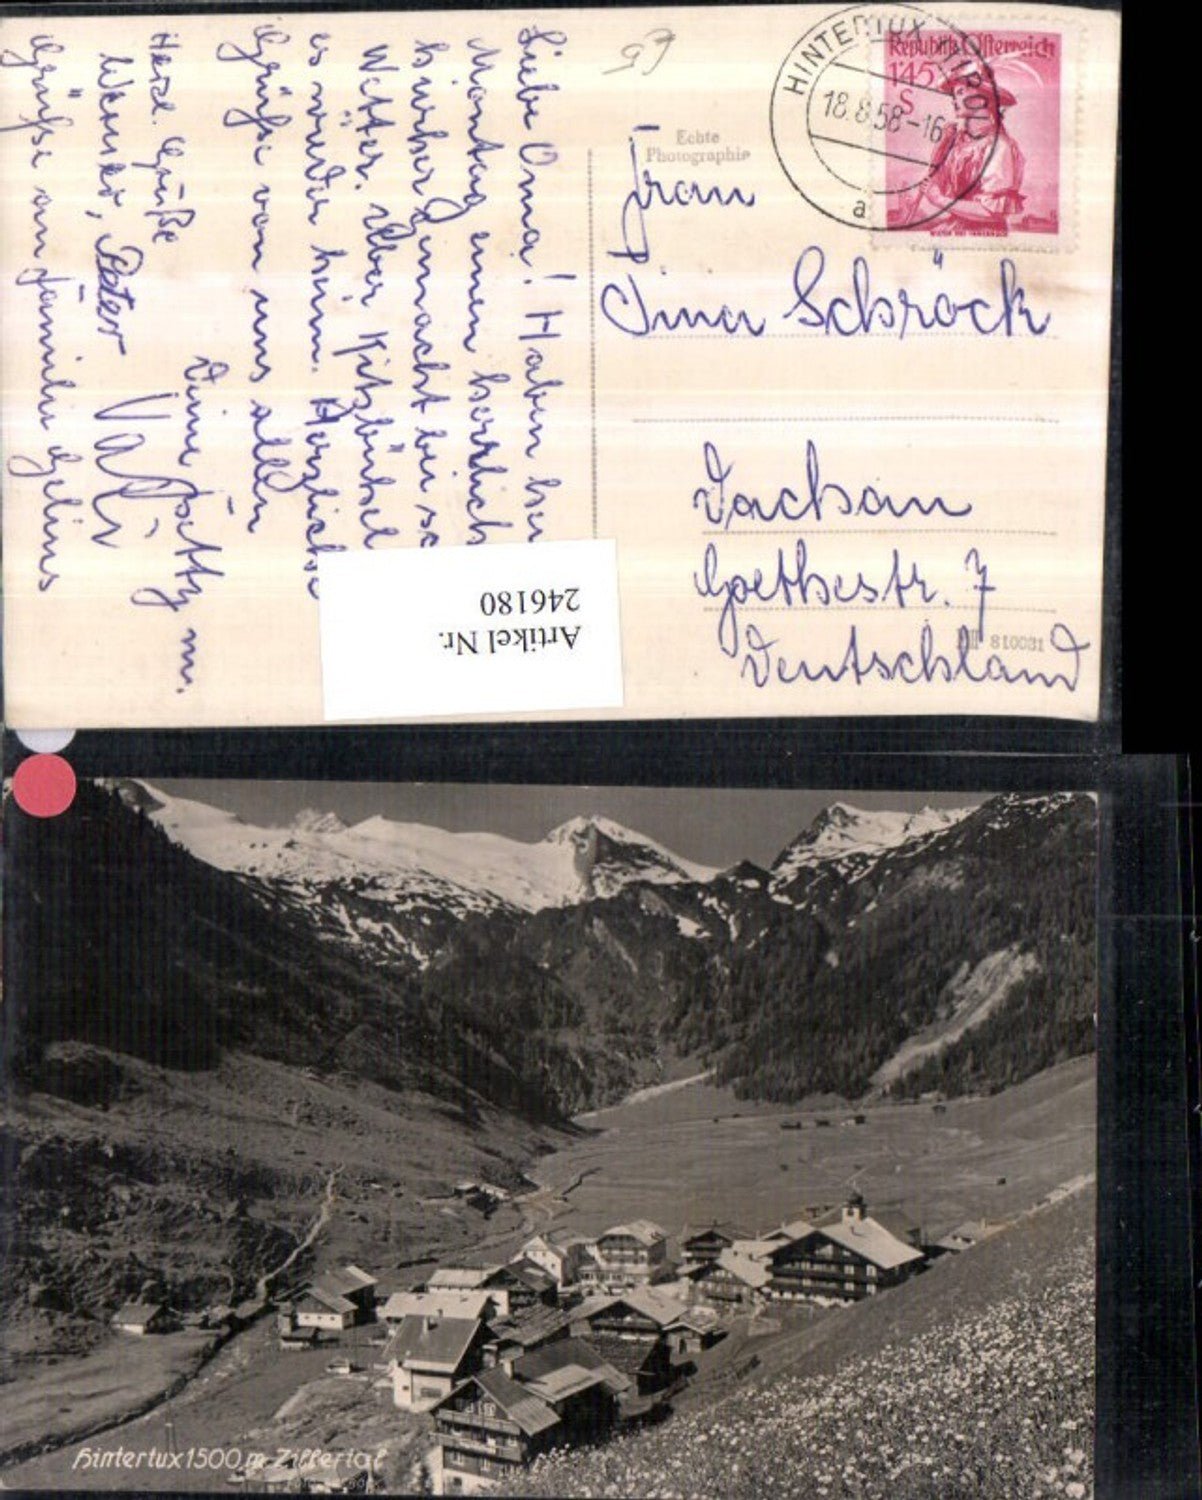 Liebe Oma! Haben heu
Montag einen herrlich
hierher gemacht bei sc
Wetter. Über Kitzbühel
es wieder heim. Herzliche
Grüße von uns allen
Deine Betty m.
Herzl. Grüße
Werner, Peter
Grüße an Familie
HINTERTUX (TIROL)
18.8.58-16
a
Republik Österreich
1'45
S
Echte
Photographie
Frau
Tina Schröck
Dachau
Goethestr. 7
Deutschland
810031
Artikel Nr.
246180
Hintertux 1500 m Zillertal